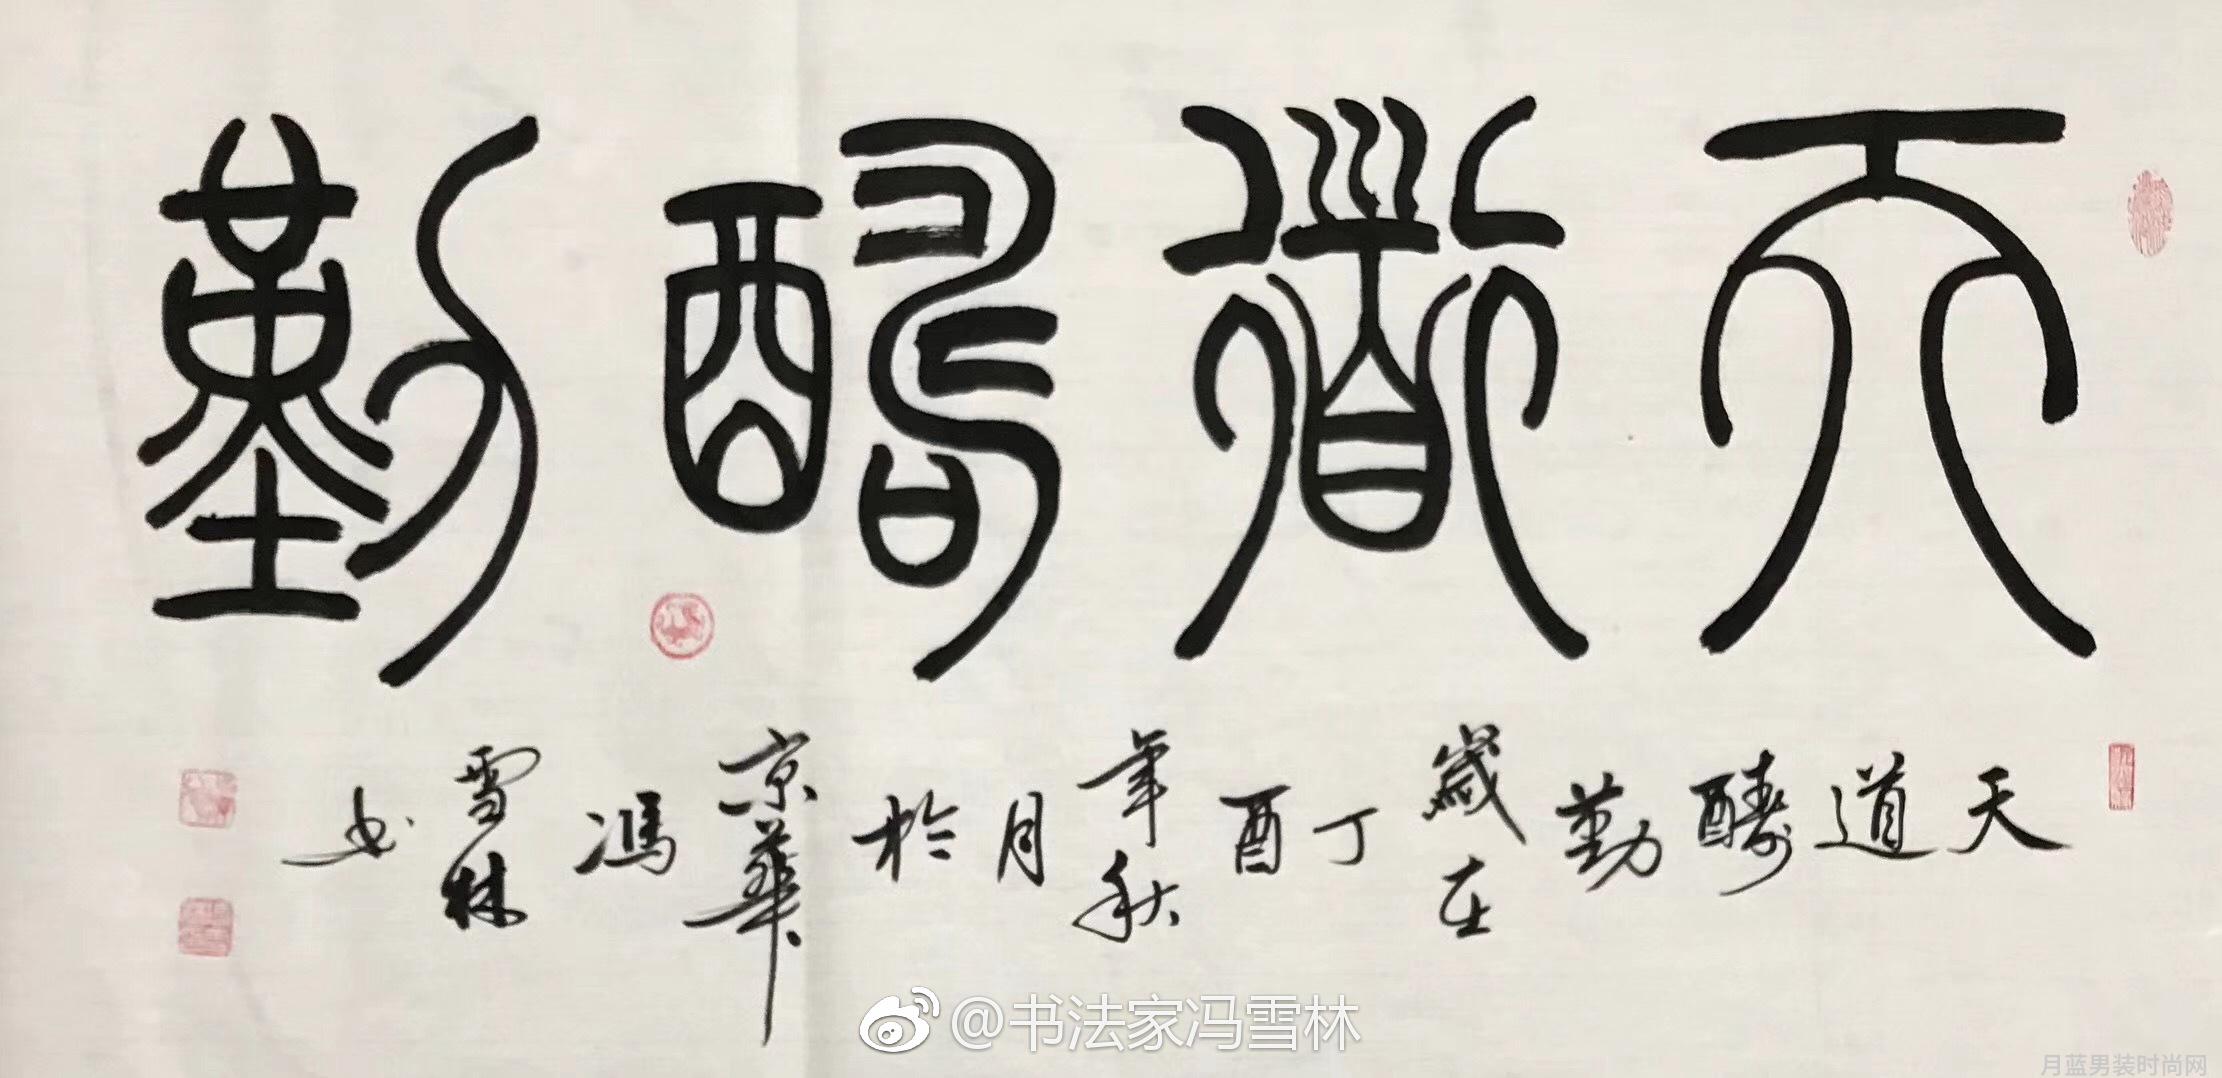 天道酬勤
天道酬勤歲在丁酉年秋月於京華馮雪林书
@书法家冯雪林
月蓝男装时尚网